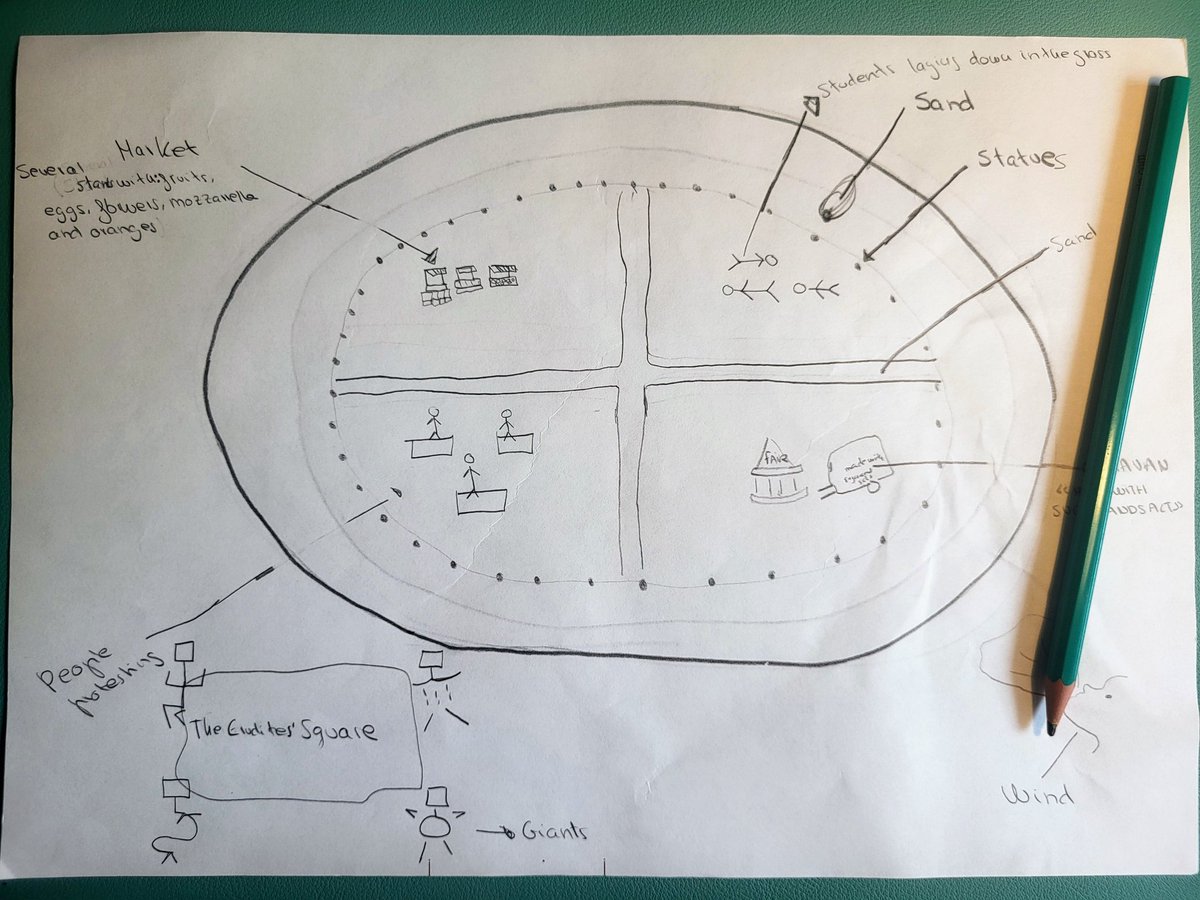 Students laying down in the grass
Sand
Statues
Sand
Market
Several
stands with: fruits,
eggs, flowers, mozzarella
and oranges
FAIR
made with
WITH
People
protesting
The Erudites' Square
Giants
Wind